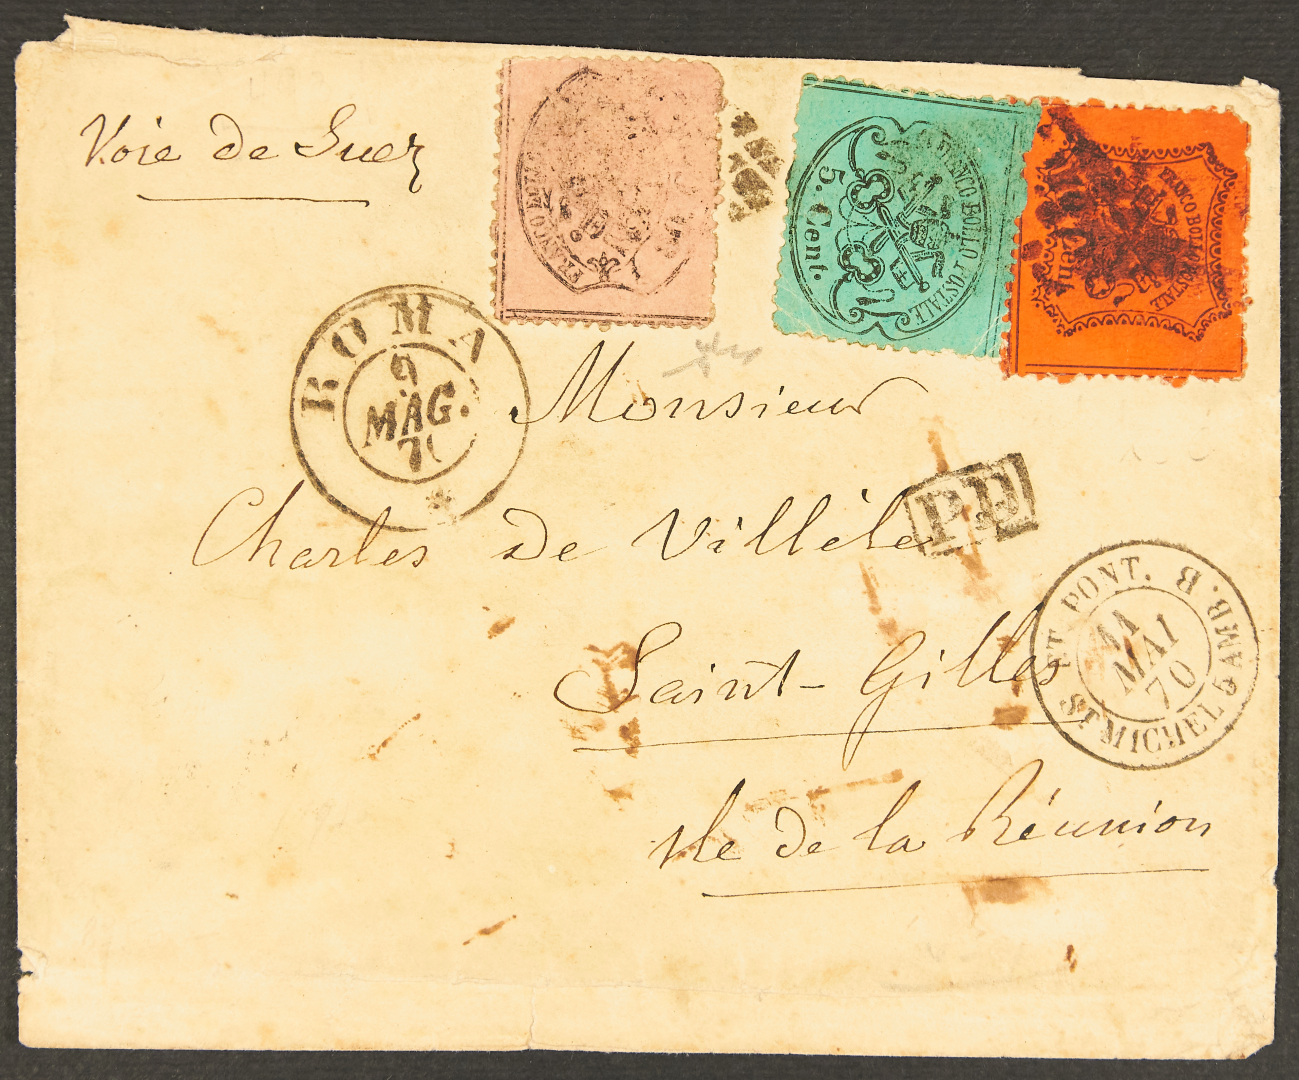 Voie de Suez
FRANCO BOLLO
FRANCO BOLLO POSTALE
5. Cent.
FRANCO BOLLO POSTALE
10 Cent
ROMA
9
MAG.
70
Monsieur
P.D
Charles de Villèle
ET PONT. B
ST MICHEL 5 AMB.
11
MAI
70
Saint-Gilles
Ile de la Réunion